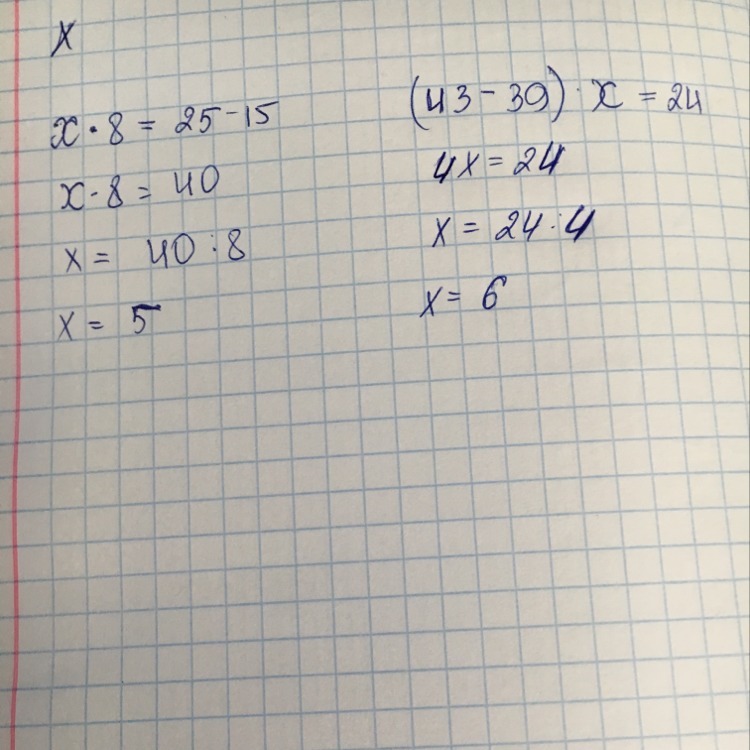 X
x · 8 = 25 - 15
x · 8 = 40
x = 40 : 8
x = 5
(43 - 39) · x = 24
4x = 24
x = 24 : 4
x = 6